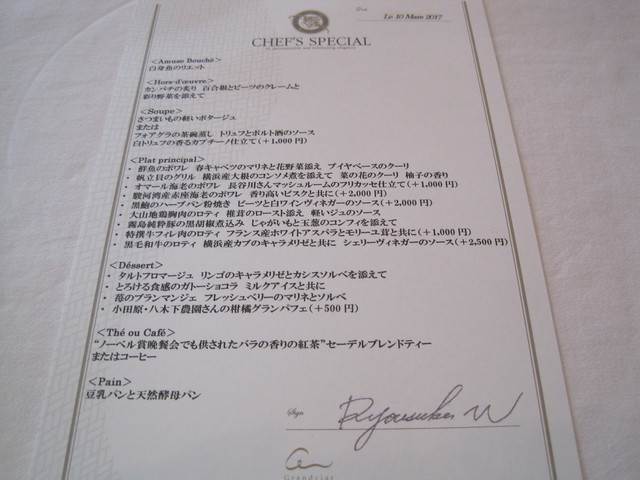 Date
Le 10 Mars 2017
CHEF'S SPECIAL
<Amuse Bouché>
白身魚のリエット
<Hors-d'œuvre>
カンパチの炙り 百合根とビーツのクレームと
彩り野菜を添えて
<Soupe>
さつまいもの軽いポタージュ
または
フォアグラの茶碗蒸し トリュフとポルト酒のソース
白トリュフの香るカプチーノ仕立て(+1,000円)
<Plat principal>
・ 鮮魚のポワレ 春キャベツのマリネと花野菜添え ブイヤベースのクーリ
・ 帆立貝のグリル 横浜産大根のコンソメ煮を添えて 菜の花のクーリ 柚子の香り
・ オマール海老のポワレ 長谷川さんマッシュルームのフリカッセ仕立て(+1,000円)
・ 駿河湾産赤座海老のポワレ 香り高いビスクと共に(+2,000円)
・ 黒鮑のハーブパン粉焼き ビーツと白ワインヴィネガーのソース(+2,000円)
・ 大山地鶏胸肉のロティ 椎茸のロースト添え 軽いジュのソース
・ 霧島純粋豚の黒胡椒煮込み じゃがいもと玉葱のコンフィを添えて
・ 特撰牛フィレ肉のロティ フランス産ホワイトアスパラとモリーユ茸と共に(+1,000円)
・ 黒毛和牛のロティ 横浜産カブのキャラメリゼと共に シェリーヴィネガーのソース(+2,500円)
<Déssert>
・ タルトフロマージュ リンゴのキャラメリゼとカシスソルベを添えて
・ とろける食感のガトーショコラ ミルクアイスと共に
・ 苺のブランマンジェ フレッシュベリーのマリネとソルベ
・ 小田原・八木下農園さんの柑橘グランパフェ(+500円)
<Thé ou Café>
“ノーベル賞晩餐会でも供されたバラの香りの紅茶”セーデルブレンドティー
またはコーヒー
<Pain>
豆乳パンと天然酵母パン
Sign
Ryousuke W